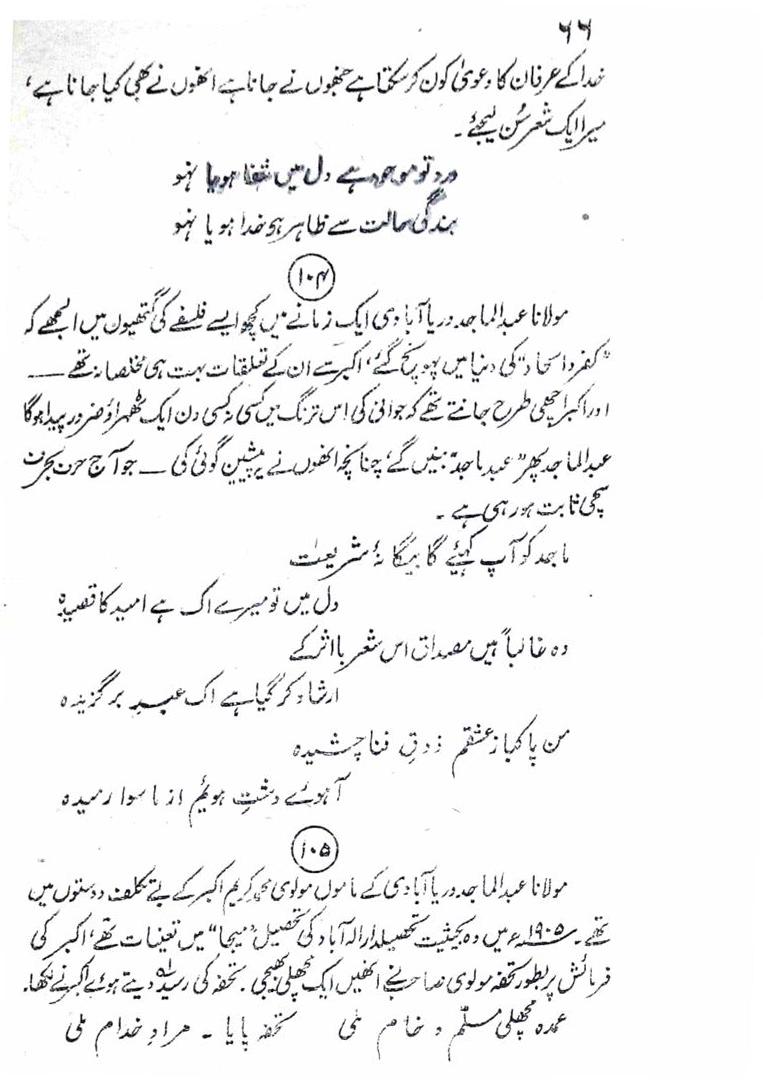 ۶۶
خدا کے عرفان کا دعویٰ کون کر سکتا ہے جنھوں نے جانا ہے انھوں نے بھی کیا جانا ہے،
میرا ایک شعر سُن لیجئے۔
درد تو موجود ہے دل میں شفا ہو یا نہو
بندگی حالت سے ظاہر ہو خدا ہو یا نہو
۱۰۴
مولانا عبدالماجد دریا آبادی ایک زمانے میں کچھ ایسے فلسفے کی گتھیوں میں الجھے کہ
"کفر و الحاد" کی دنیا میں پہونچ گئے، اکبر سے ان کے تعلقات بہت ہی مخلصانہ تھے ——
اور اکبر اچھی طرح جانتے تھے کہ جوانی کی اس ترنگ میں کسی نہ کسی دن ایک ٹھہراؤ ضرور پیدا ہوگا
عبدالماجد پھر "عبد ماجد" بنیں گے، چنانچہ انھوں نے یہ پیشین گوئی کی — جو آج حرف بحرف
سچی ثابت ہو رہی ہے۔
ماجد کو آپ کہئیے گا بیگانۂ شریعت
دل میں تو میرے اک ہے امید کا قصیدہ
وہ غالباً ہیں مصداق اس شعر با اثر کے
ارشاد کر گیا ہے اک عبدِ برگزیدہ
من پاکباز عشقم ذوقِ فنا چشیدہ
آہوئے دشتِ ہویم از ما سوا رمیدہ
۱۰۵
مولانا عبدالماجد دریا آبادی کے ماموں مولوی محمد کریم اکبر کے بے تکلف دوستوں میں
تھے۔ ۱۹۰۵ء میں وہ بحیثیت تحصیلدار الہ آباد کی تحصیل "میجا" میں تعینات تھے، اکبر کی
فرمائش پر بطور تحفہ مولوی صاحب نے انھیں ایک مچھلی بھیجی۔ تحفہ کی رسید دیتے ہوئے اکبر نے لکھا۔
عمدہ مچھلی مسلّم و خام ملی تحفہ پایا۔ مرادِ خدام ملی